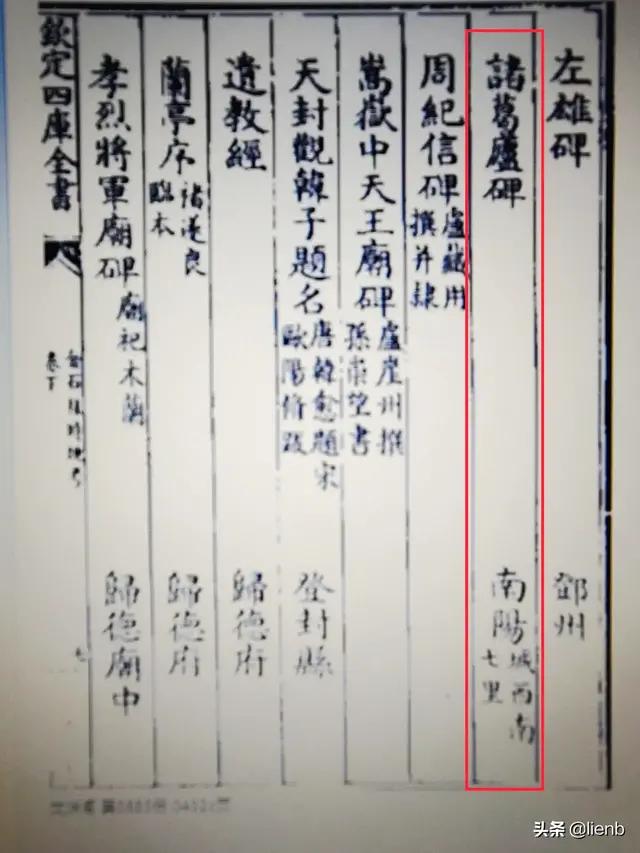 左雄碑 鄧州
諸葛廬碑 南陽城西南七里
周紀信碑盧藏用撰并隸
嵩嶽中天王廟碑盧崖州撰孫崇望書
天封觀韓子題名唐韓愈題宋歐陽脩跋 登封縣
遺教經 歸德府
蘭亭序褚遂良臨本 歸德府
孝烈將軍廟碑廟祀木蘭 歸德廟中
欽定四庫全書
卷下
头条 @lienb